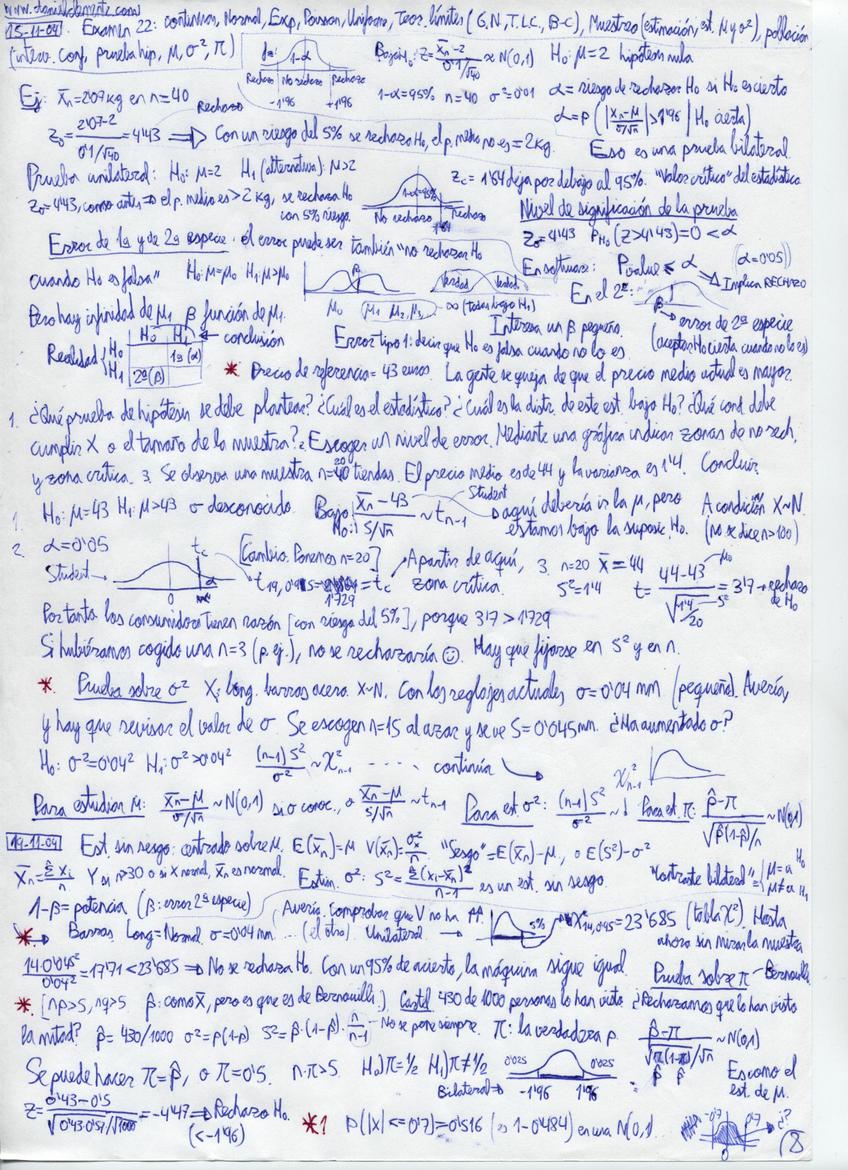 www.danielclemente.com
15-11-04 Examen 22: continuas, Normal, Exp, Poisson, Uniforme, Teor. límites (G.N, T.L.C, B-C), Muestreo (estimación, est. μ y σ²), población
(interv. conf, prueba hip, μ, σ², π)
1-α
Rechazo No rechazo Rechazo
-1'96 +1'96
Bajo H₀: Z = (x̄n-2)/(0'1/√40) ≈ N(0,1) H₀: μ=2 hipótesis nula
1-α=95% n=40 σ²=0'01
α = riesgo de rechazar H₀ si H₀ es cierto
α = P(|x̄n-μ / σ/√n| > 1'96 | H₀ cierta)
Eso es una prueba bilateral.
Ej: x̄n=2'07kg en n=40
Z₀ = (2'07-2)/(0'1/√40) = 4'43 Rechazo ⇒ Con un riesgo del 5% se rechaza H₀, el p. medio no es = 2kg.
Prueba unilateral: H₀: μ=2 H₁ (alternativa): μ>2
Z₀=4'43, como antes ⇒ el p. medio es >2 kg, se rechaza H₀
con 5% riesgo.
No rechazo Rechazo
1'64
Zc = 1'64 deja por debajo al 95%. "Valor crítico" del estadístico
Nivel de significación de la prueba
Z₀=4'43 P_H₀(Z>4'43)=0 < α
(α=0'05)
En software: Pvalue ≤ α ⇒ Implica RECHAZO
Error de 1ª y de 2ª especie: el error puede ser también "no rechazar H₀
cuando H₀ es falsa" H₀: μ=μ₀ H₁: μ>μ₀
β
verdad verdad
μ₀ (μ₁ μ₂, μ₃) - ∞ (todas bajo H₁)
En el 2º:
β → error de 2ª especie
(aceptar H₀ cierta cuando no lo es)
Pero hay infinidad de μ₁ β función de μ₁.
Interesa un β pequeño.
H₀ H₁ ← conclusión
Realidad H₀ 1ª (α)
H₁ 2ª (β)
Error tipo 1: decir que H₀ es falsa cuando no lo es.
* Precio de referencia = 43 euros. La gente se queja de que el precio medio actual es mayor.
1. ¿Qué prueba de hipótesis se debe plantear? ¿Cuál es el estadístico? ¿Cuál es la distr. de este est. bajo H₀? ¿Qué cond. debe
cumplir X o el tamaño de la muestra? 2. Escoger un nivel de error. Mediante una gráfica indicar zonas de no rech.
y zona crítica. 3. Se observa una muestra n=20 tiendas. El precio medio es de 44 y la varianza es 1'4. Concluir.
1. H₀: μ=43 H₁: μ>43 σ desconocido. Bajo H₀: (x̄n-43)/(S/√n) ~ t n-1 Student
→ aquí debería ir la μ, pero
estamos bajo la suposic. H₀.
A condición X~N.
(no se dice n>100)
2. α=0'05
Student
tc
0 α
[Cambio. Ponemos n=20]
t 19, 0'95 = 1'729 = tc
A partir de aquí,
zona crítica.
3. n=20 x̄=44
S²=1'4 t = (44-43)/√(1'4/20) = 3'7 → rechazo de H₀
μ₀
S²
Por tanto los consumidores tienen razón [con riesgo del 5%], porque 3'7 > 1'729
Si hubiéramos cogido una n=3 (p. ej.), no se rechazaría ☺. Hay que fijarse en S² y en n.
* Prueba sobre σ² X: long. barras acero. X~N. Con los reglajes actuales σ=0'04 mm (pequeña). Avería,
y hay que revisar el valor de σ. Se escogen n=15 al azar y se ve S=0'045mm. ¿Ha aumentado σ?
H₀: σ²=0'04² H₁: σ²>0'04² (n-1)S²/σ² ~ χ² n-1 ---- continúa
χ² n-1
Para estudiar μ: (x̄n-μ)/(σ/√n) ~ N(0,1) si σ conoc., o (x̄n-μ)/(S/√n) ~ t n-1 Para est. σ²: (n-1)S²/σ² ~ Para est. π: (p̂-π)/√(p̂(1-p̂)/n) ~ N(0,1)
19-11-04 Est. sin sesgo: centrado sobre μ. E(x̄n)=μ V(x̄n)=σx²/n "Sesgo"=E(x̄n)-μ, o E(S²)-σ²
x̄n = Σxi/n Y si n>30 o si X normal, x̄n es normal. Estim. σ²: S² = Σ(xi-x̄n)²/(n-1) es un est. sin sesgo.
"Contraste bilateral" = {μ=a H₀
μ≠a H₁
1-β = potencia (β: error 2ª especie)
Avería. Comprobar que V no ha ↑↑
* Barras Long=Normal. σ=0'04mm ... (el otro) Unilateral →
5%
χ² 14, 0'95 = 23'685 (tabla χ²). Hasta
ahora sin mirar la muestra
14·0'045²/0'04² = 17'71 < 23'685 ⇒ No se rechaza H₀. Con un 95% de acierto, la máquina sigue igual.
Prueba sobre π - Bernouilli
* [np>5, nq>5 p̂: como x̄, pero es que es de Bernouilli.] Cartel 430 de 1000 personas lo han visto. ¿Rechazamos que lo han visto
la mitad? p̂ = 430/1000 σ²=p(1-p) S²=p̂·(1-p̂)·n/(n-1) - No se pone siempre. π: la verdadera p. (p̂-π)/(√(π(1-π))/√n) ~ N(0,1)
p̂ p̂
Se puede hacer π=p̂, o π=0'5. n·π>5 H₀) π=1/2 H₁) π≠1/2
Bilateral →
0'025 0'025
-1'96 1'96
Es como el
est. de μ.
Z = (0'43-0'5)/(√(0'43·0'57)/√1000) = -4'47 ⇒ Rechazo H₀.
(<-1'96)
*1 P(|X| <= 0'7) = 0'516 (es 1-0'484) en una N(0,1).
-0'7 0'7
0
¿?
8